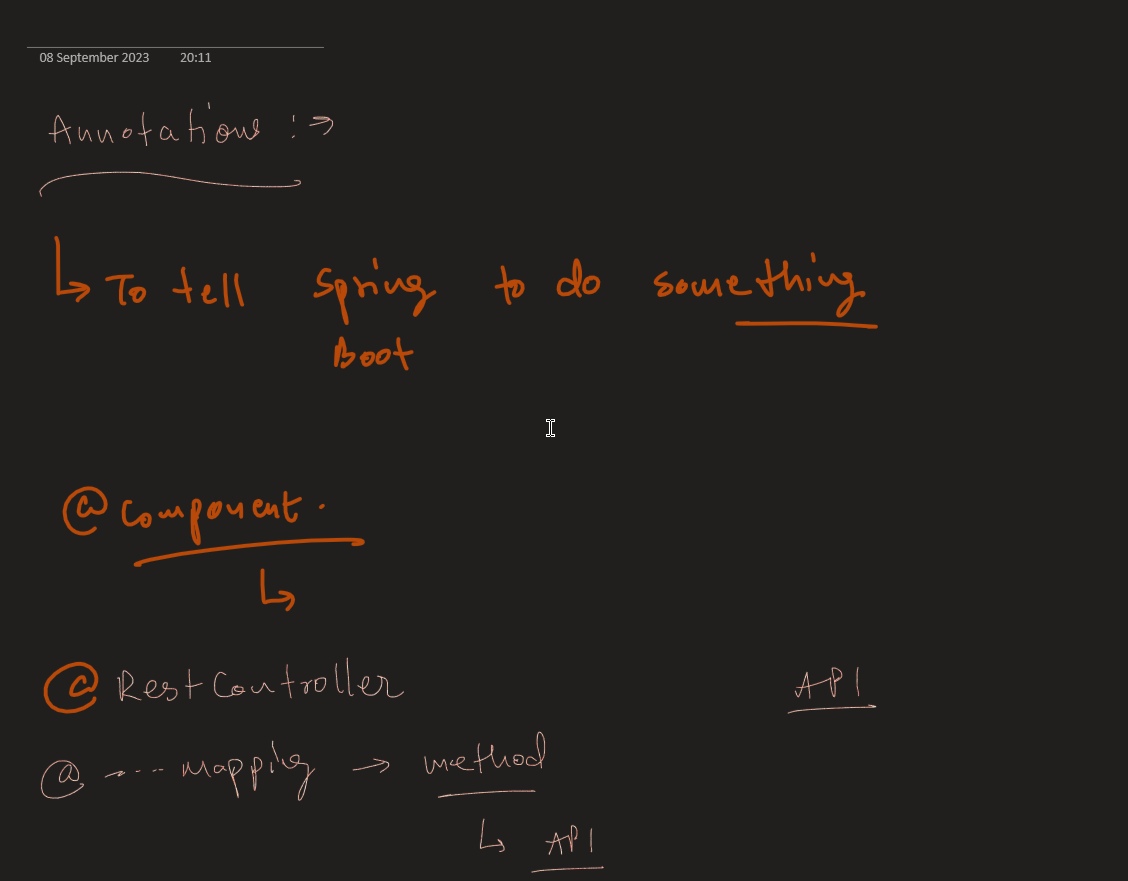 08 September 2023 20:11
Annotations :→
↳ To tell Spring to do something
Boot
@Component.
↳
@RestController API
@ ---- mapping → method
↳ API